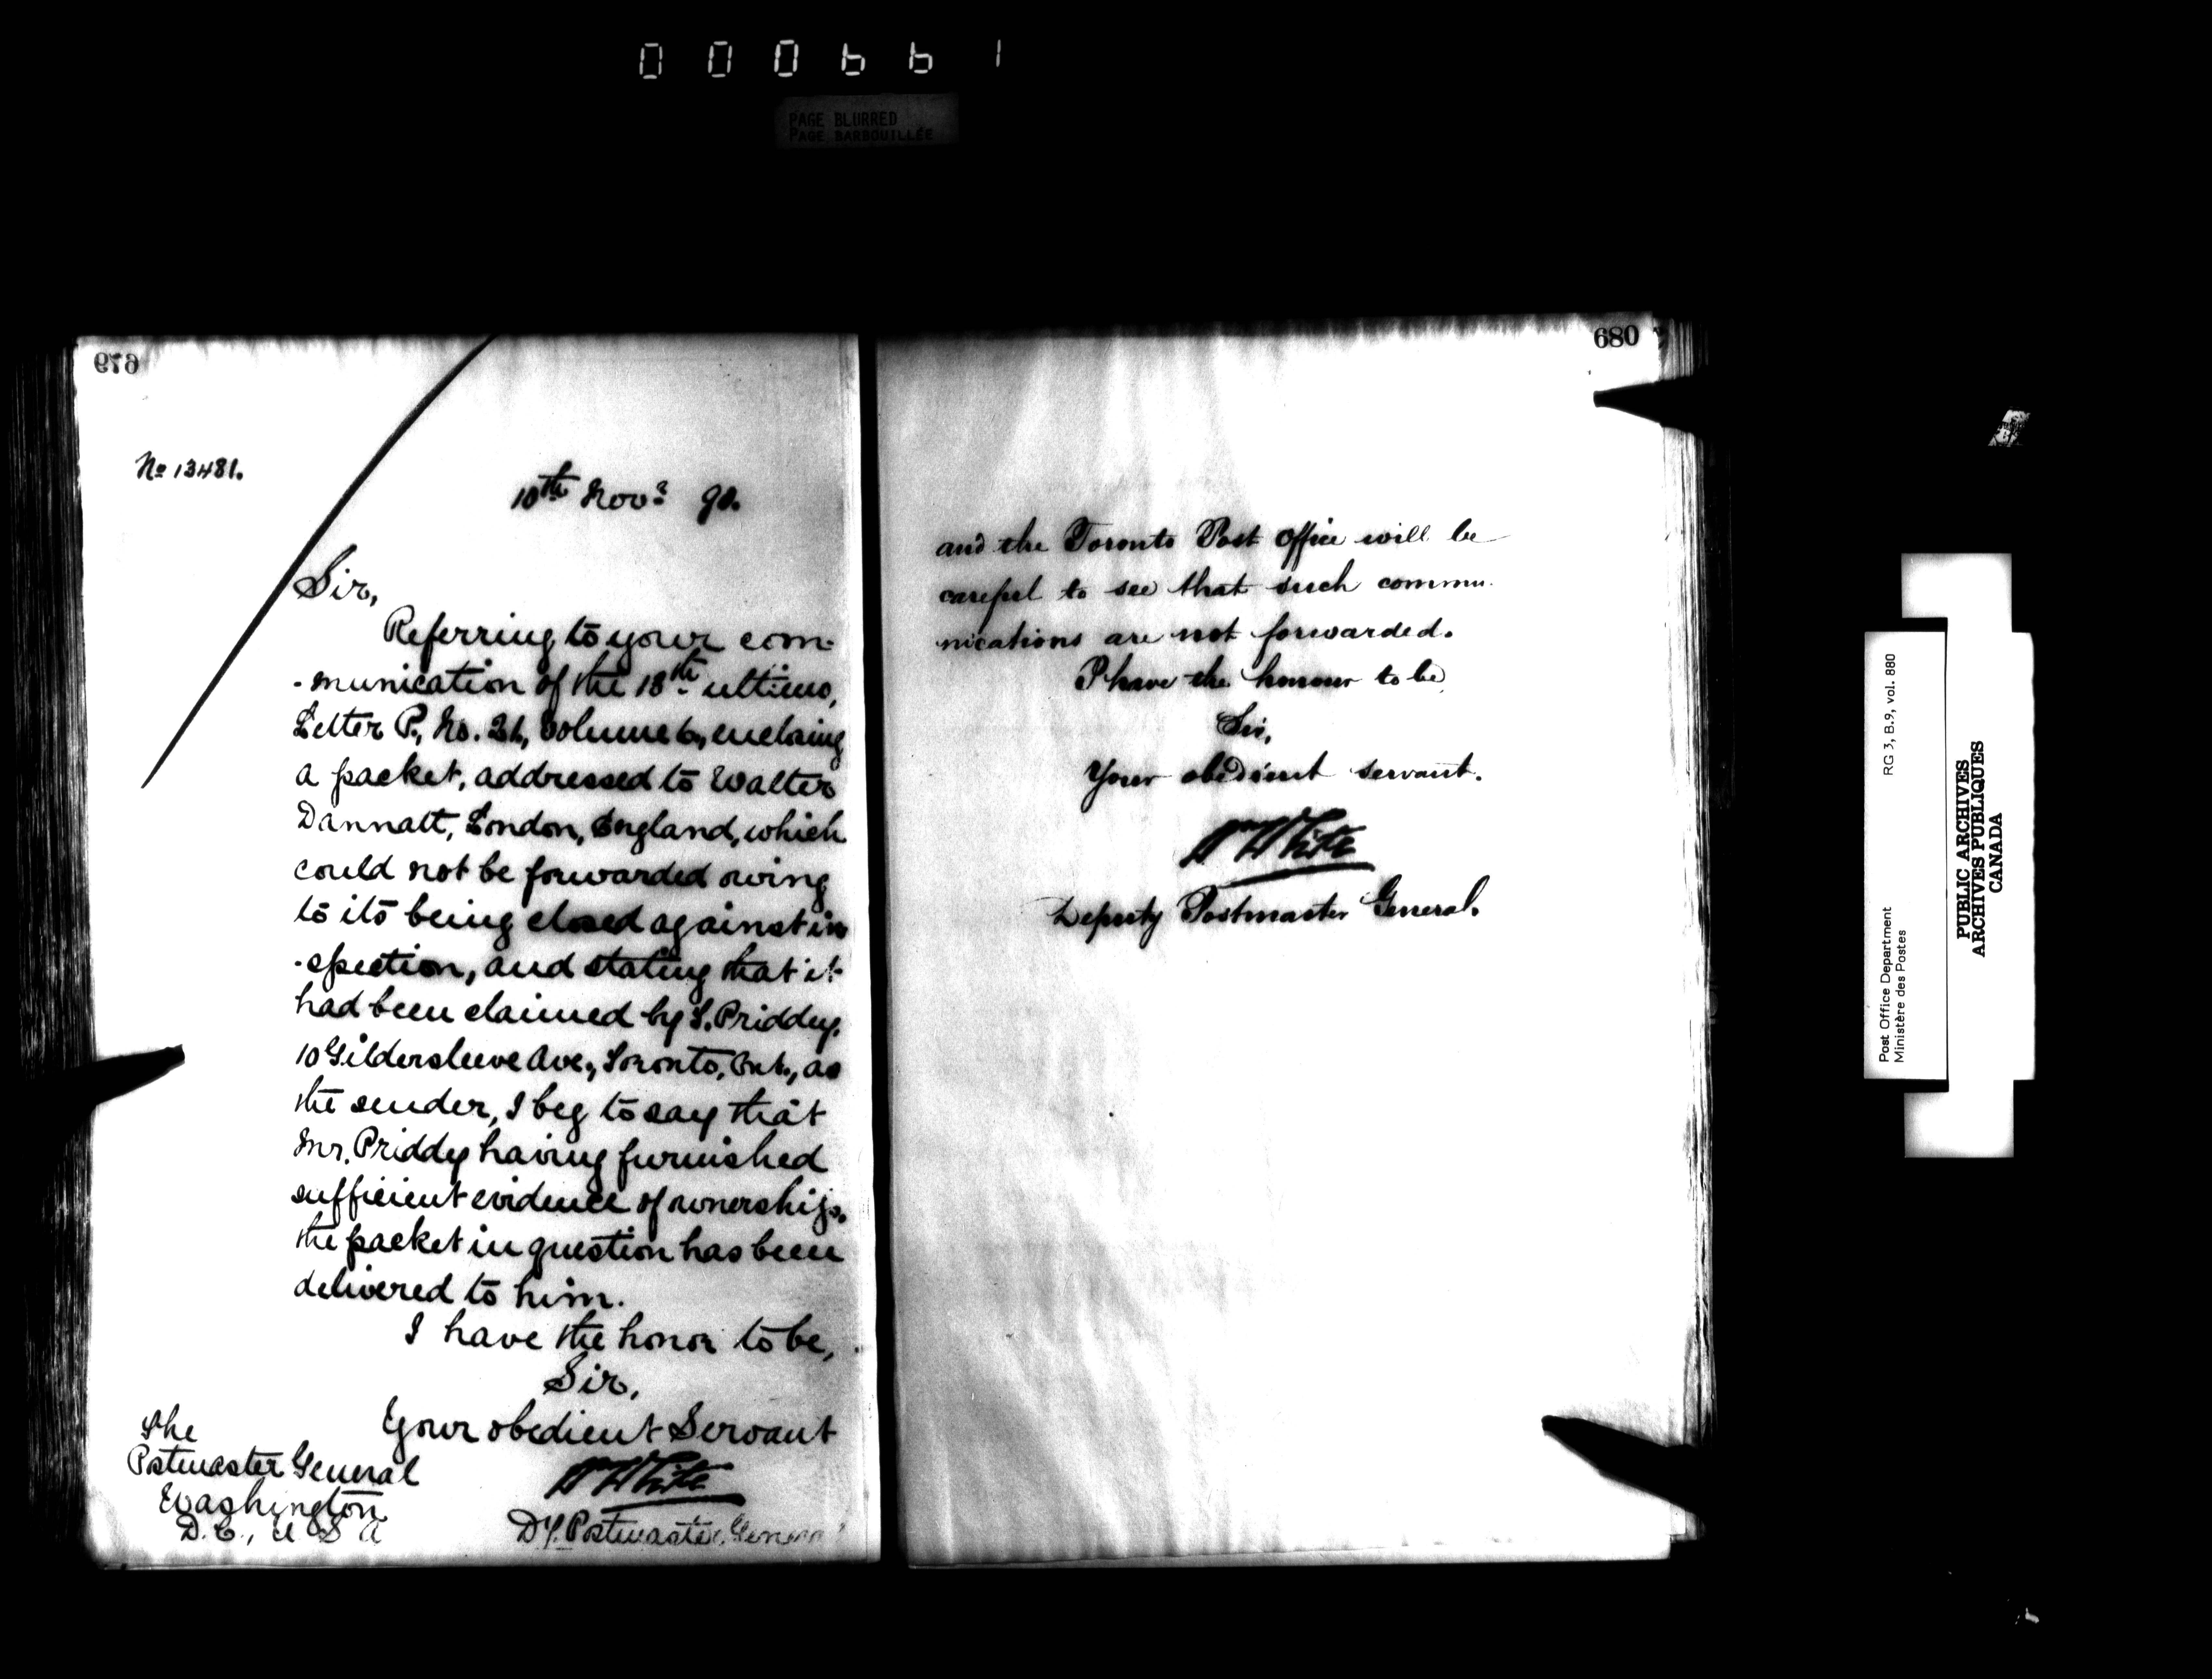 000661
PAGE BLURRED
PAGE BARBOUILLÉE
679
No 13481.
10th Nov. 90.
Sir,
Referring to your com-
-munication of the 18th ultimo,
Letter P., No. 21, Volume 6, enclosing
a packet, addressed to Walter
Dannatt, London, England, which
could not be forwarded owing
to its being closed against in
-spection, and stating that it
had been claimed by S. Priddy,
10 Gildersleeve Ave., Toronto, Ont., as
the sender, I beg to say that
Mr. Priddy having furnished
sufficient evidence of ownership,
the packet in question has been
delivered to him.
I have the honor to be,
Sir,
Your obedient Servant
Wm White
Dy. Postmaster General
The
Postmaster General
Washington
D.C., U S A
680
and the Toronto Post Office will be
careful to see that such commu-
nications are not forwarded.
I have the honour to be
Sir,
Your obedient servant.
Wm White
Deputy Postmaster General.
Post Office Department
Ministère des Postes
RG 3, B.9, vol. 880
PUBLIC ARCHIVES
ARCHIVES PUBLIQUES
CANADA